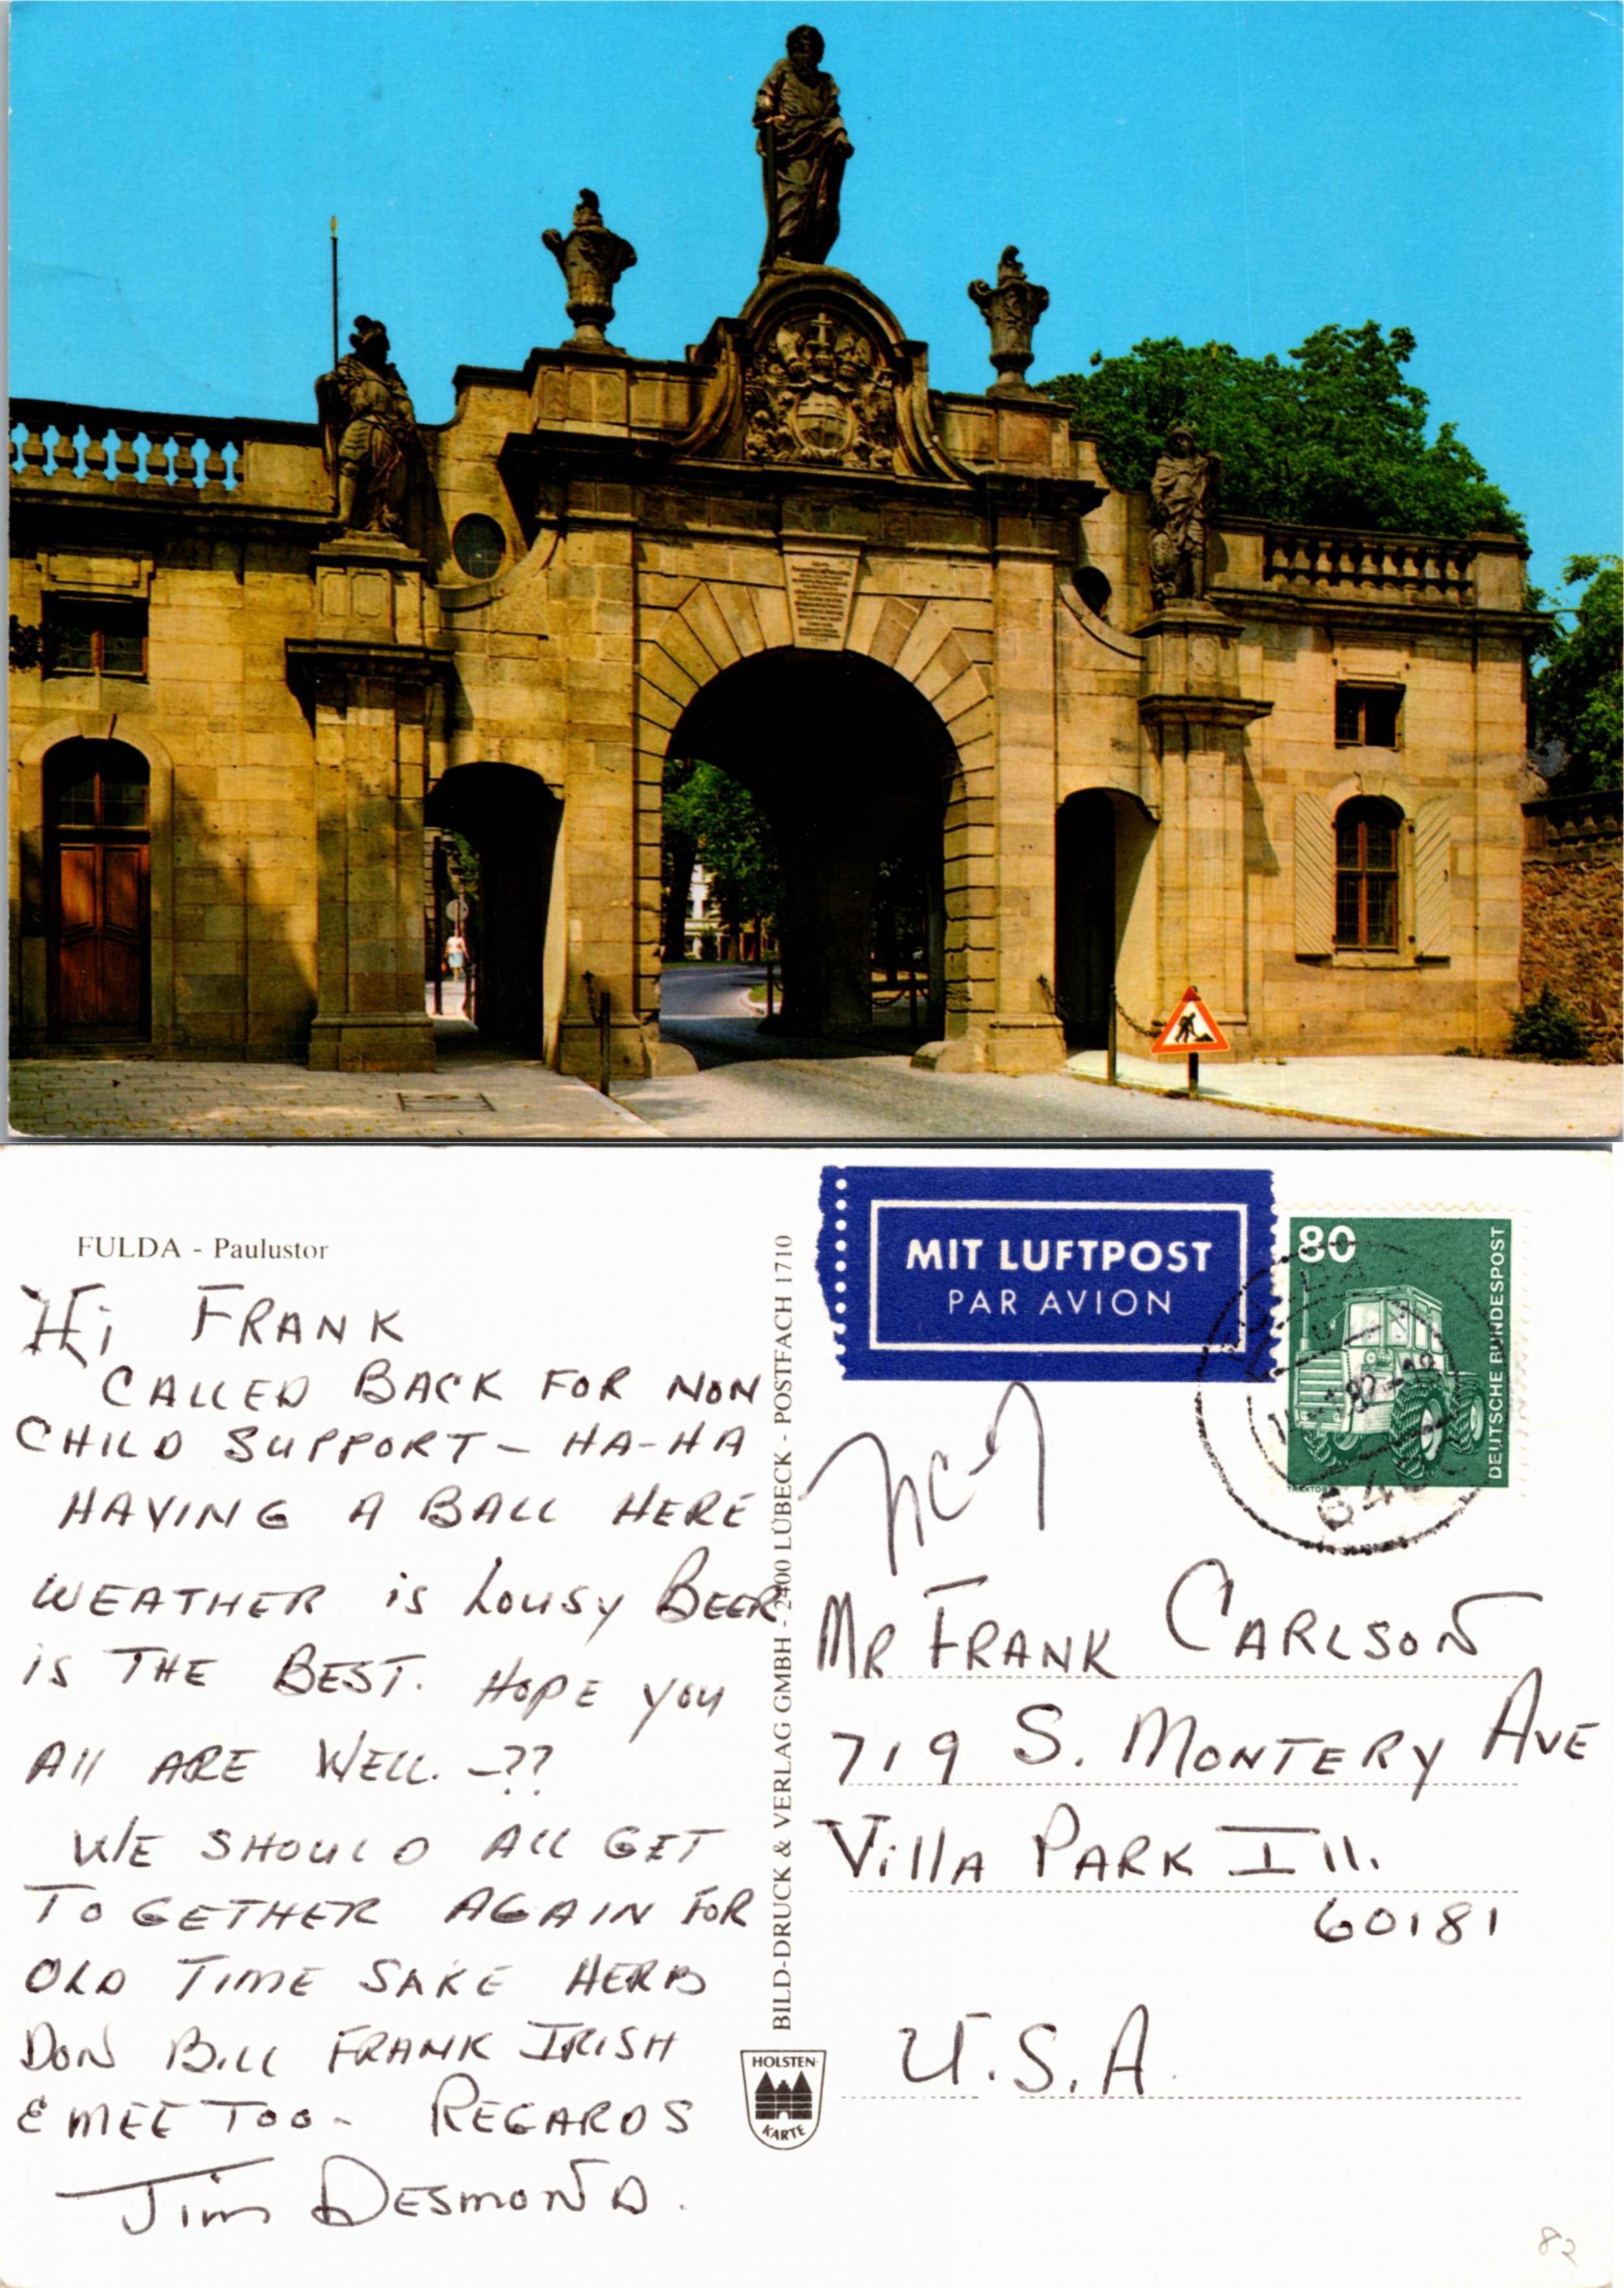 FULDA - Paulustor
Hi FRANK
CALLED BACK FOR NON
CHILD SUPPORT - HA-HA
HAVING A BALL HERE
WEATHER is LOUSY BEER
is THE BEST. HOPE YOU
All ARE WELL. -??
WE SHOULD ALL GET
TOGETHER AGAIN FOR
OLD TIME SAKE HERB
DON BILL FRANK IRISH
& MEE TOO - REGARDS
Jim DESMOND.
BILD-DRUCK & VERLAG GMBH - 2400 LÜBECK - POSTFACH 1710
HOLSTEN-
KARTE
MIT LUFTPOST
PAR AVION
80
DEUTSCHE BUNDESPOST
TRAKTOR
MR FRANK CARLSON
719 S. MONTERY AVE
VillA PARK Ill.
60181
U.S.A.
82